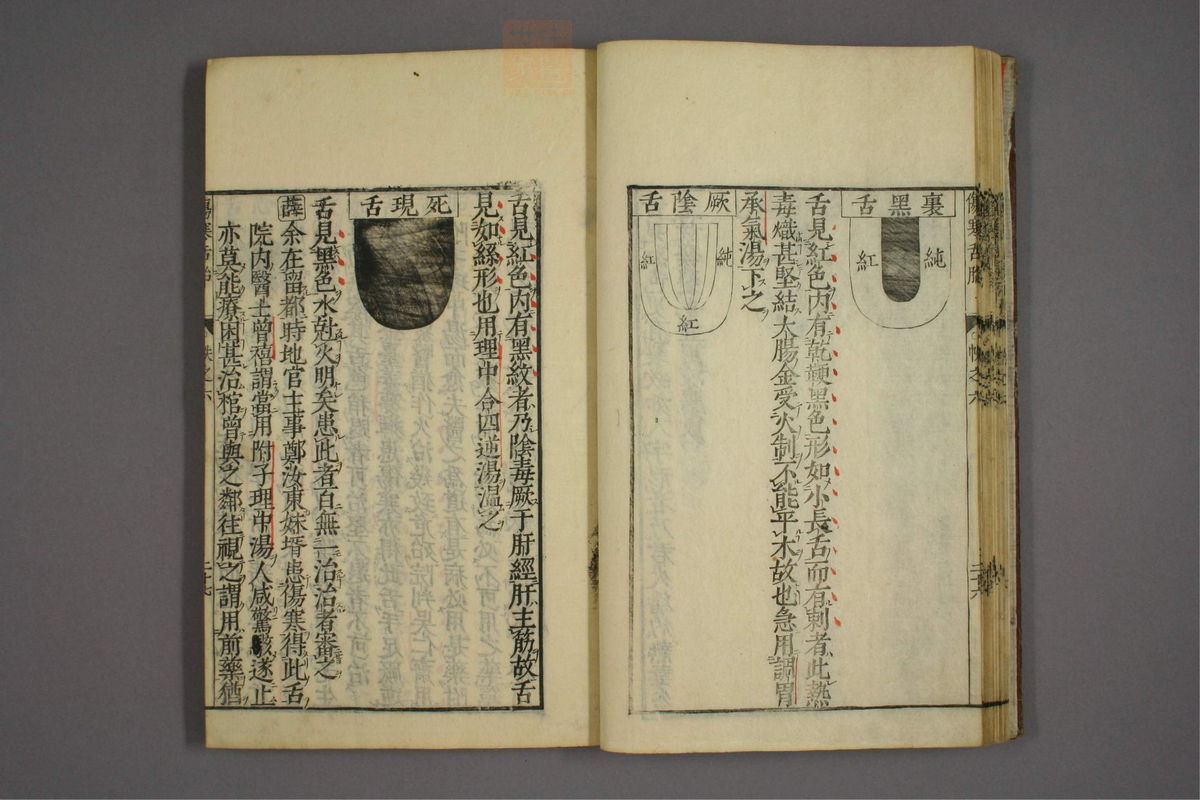 裏黑舌
純
紅
舌見紅色内有乾硬黑色形如小長舌而有刺者此熱
毒熾甚堅結大腸金受火制不能平木故也急用調胃
承氣湯下之
厥陰舌
純
紅
紅
舌見紅色内有黑紋者乃陰毒厥于肝經肝主筋故舌
見如絲形也用理中合四逆湯溫之
死現舌
舌見黑色水尅火明矣患此者百無一治治者審之
薛余在留都時地官主事鄭汝東妹壻患傷寒得此舌
院内醫士曾禧謂當用附子理中湯人咸驚駭遂止
亦莫能療困甚治棺曾與之鄰往視之謂用前藥猶
二十七